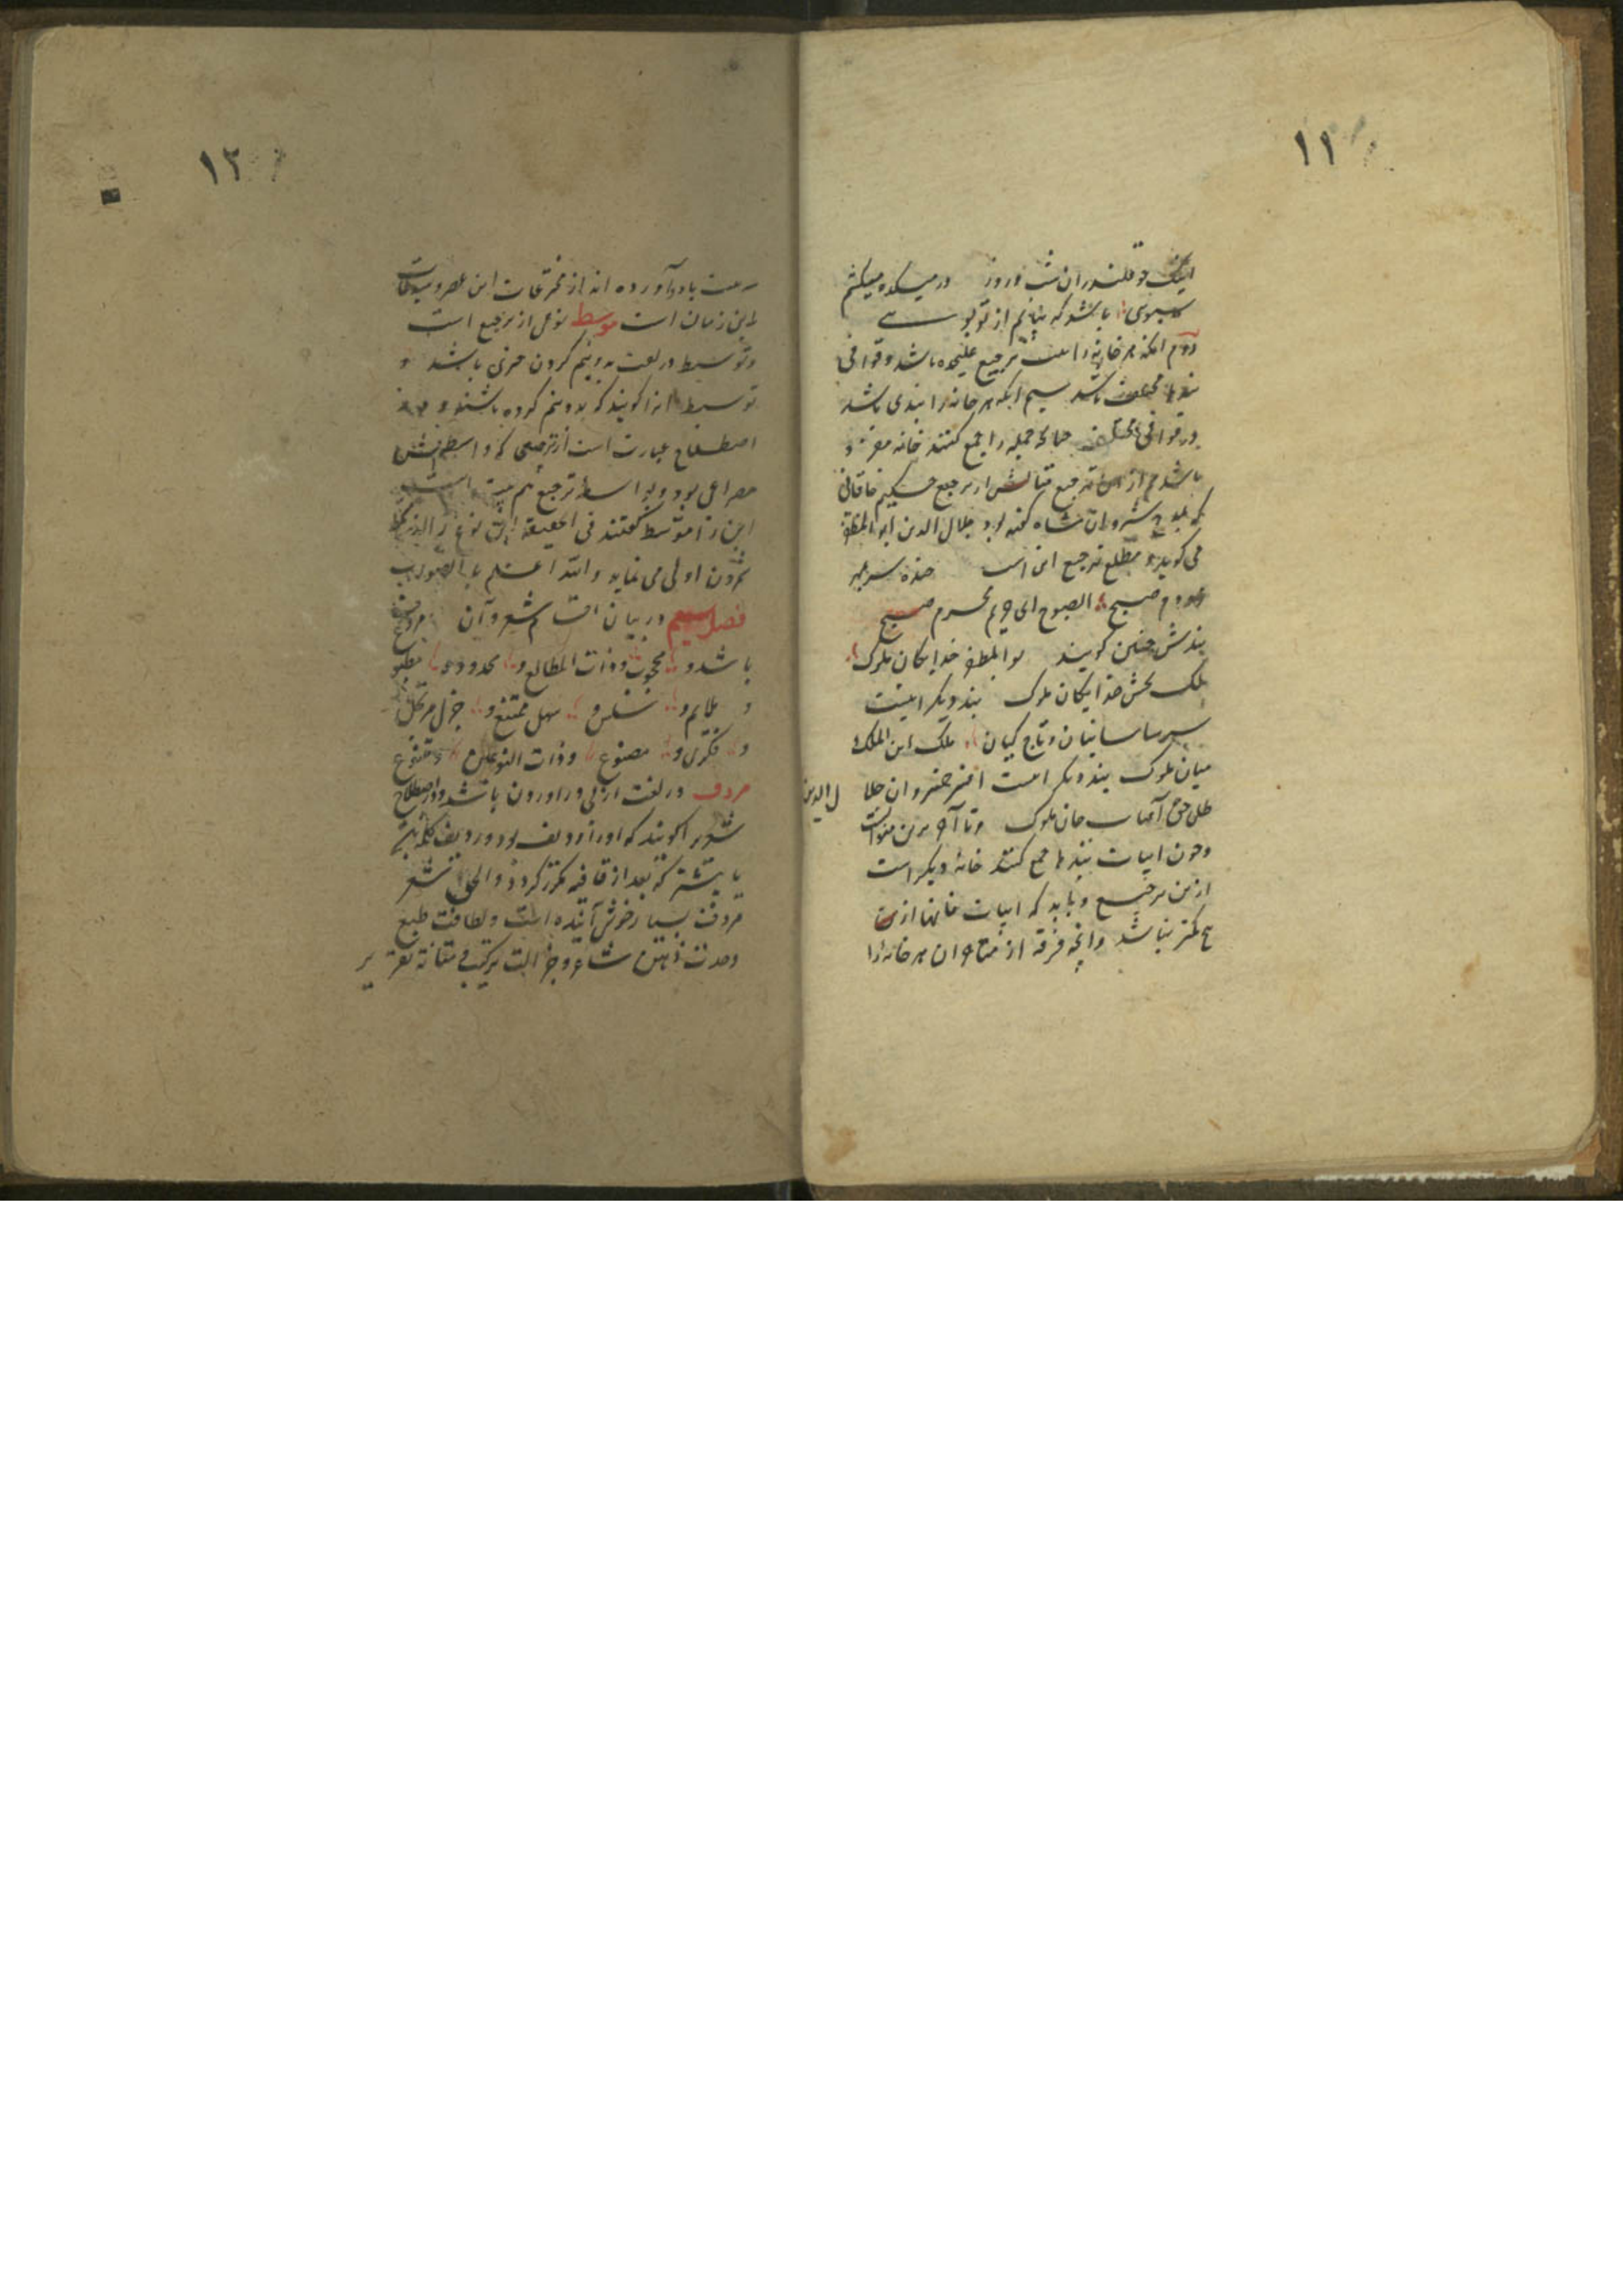 ١١
اینک چو قلندران شب و روز در میکده میکشم
سبوی باشد که بیابم از تو بوسے
دوم آنکه هر خانه را بیت ترجیع علیحده باشد و قوافی
بندها مختلف باشد سیم آنکه هر خانه را بندی باشد
و در قوافی مختلف چنانکه جمله را جمع کنند خانه مفرد
باشد هم از آن ترجیع مثالش از ترجیع حکیم خاقانی
که بمدح شروان شاه گفته بود جلال الدین ابو المظفر
می گوید و مطلع ترجیع این است خنده سر بمهر
زد دم صبح الصبوح ای حریم محرم صبح
بندش چنین گویند بو المظفر خدایگان ملوک
ملک بخش خدایگان ملوک بند دیگر اینست
سر ساسانیان و تاج کیان ملک ابن الملک
میان ملوک بند دیگر است افسر خسروان جلال الدین
ظل حق آفتاب جان ملوک و تا آخر برین منوال است
و چون ابیات بندها جمع کنند خانهٔ دیگر است
ازین ترجیع و باید که ابیات خانها از
پنج کمتر نباشد و آنچه فرقه از شاعران هر خانه را
١٢
بیت باد آورده اند از مخترعات این عصر و
این زمان است موسط نوعی از ترجیع است
و توسیط در لغت بدو نیم کردن چیزی باشد و
توسیط آنرا گویند که بدو نیم کرده باشند و در
اصطلاح عبارت است از ترجیعی که واسطه اش
مصراعی بود و بواسطه ترجیع هم بیت است
این را متوسط گفتند فی الحقیقة این نوع را
شمردن اولی می نماید والله اعلم بالصواب
فصل سیم در بیان اقسام شعر و آن مردف
باشد و محجوب و ذات المطالع و محدود و مطبوع
و ملایم و سلس و سهل ممتنع و جزل مرتجل
و فکری و مصنوع و ذات النوعین و متنوع
مردف در لغت از پی در آوردن باشد و در اصطلاح
شعر را گویند که او را ردیف بود و ردیف کلمه است
یا بیشتر که بعد از قافیه مکرر گردد و الحق شعر
مردف بسیار خوش آینده است و لطافت طبع
و حدت ذهن شاعر و جزالت ترکیب و متانة تقریر